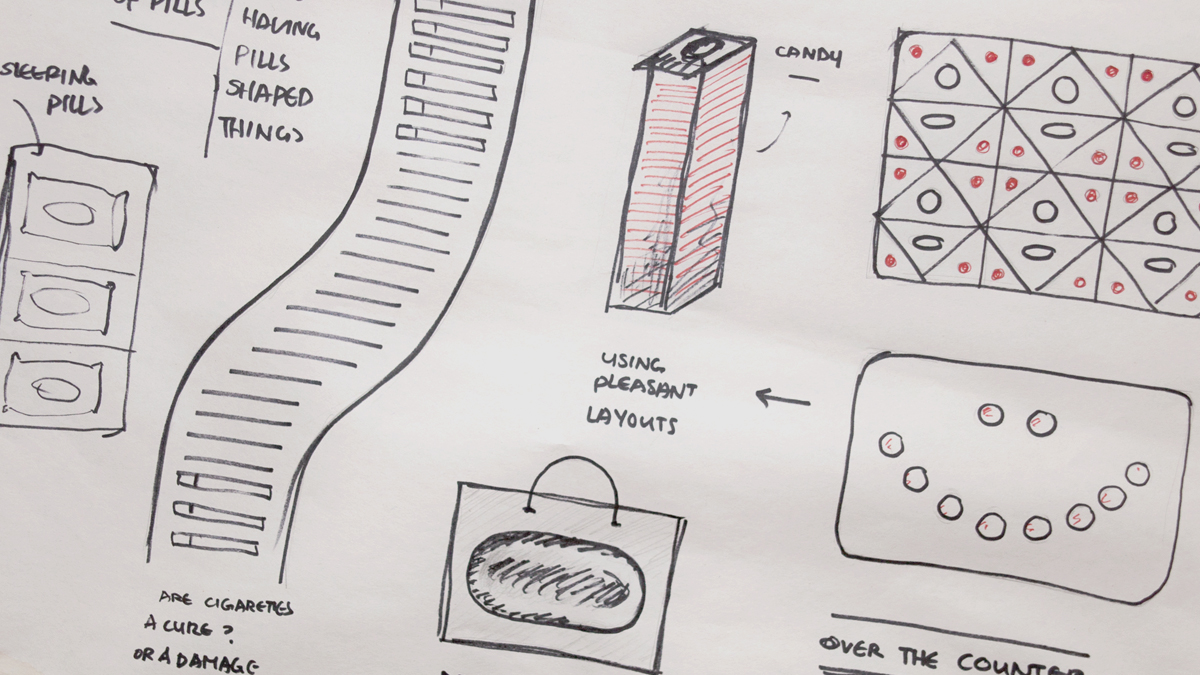 OF PILLS
HAVING
PILLS
SHAPED
THINGS
SLEEPING
PILLS
CANDY
USING
PLEASANT
LAYOUTS
ARE CIGARETTES
A CURE?
OR A DAMAGE
OVER THE COUNTER